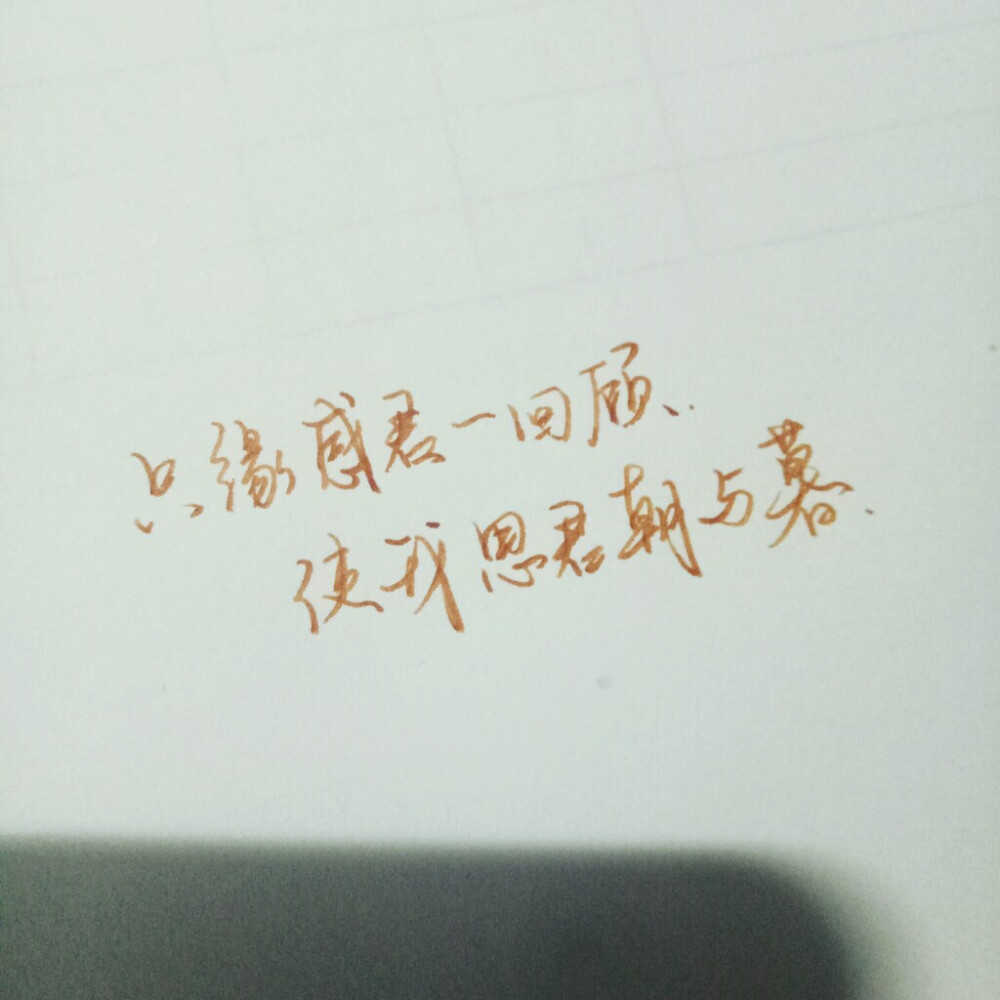 只缘感君一回顾、
使我思君朝与暮.